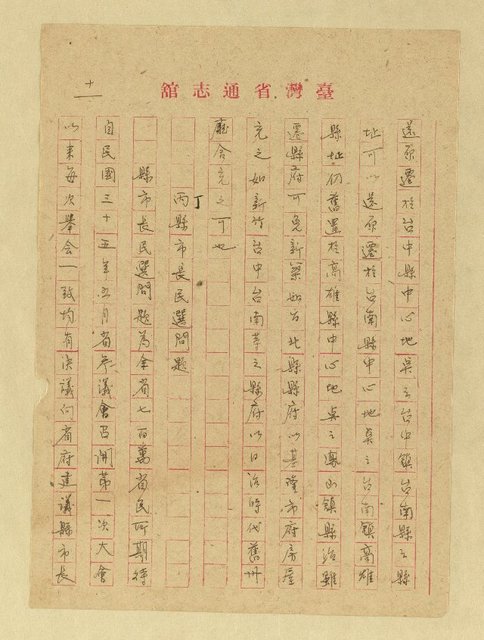 臺灣省通志館
十一
遂原遷於台中縣中心地點之台中鎮台南縣之縣
址可以遂原遷於台南縣中心地點之台南鎮高雄
縣址仍舊置於高雄縣中心地點之鳳山鎮縣治雖
遷縣府可免新築如台北縣縣府以基隆市府房屋
充之如新竹台中台南等之縣府以日治時代舊州
廳舍充之可也
丁 丙縣市長民選問題
縣市長民選問題為全省七百萬省民所期待
自民國三十五年五月省參議會召開第一次大會
以來每次舉會一致均有決議向省府建議縣市長